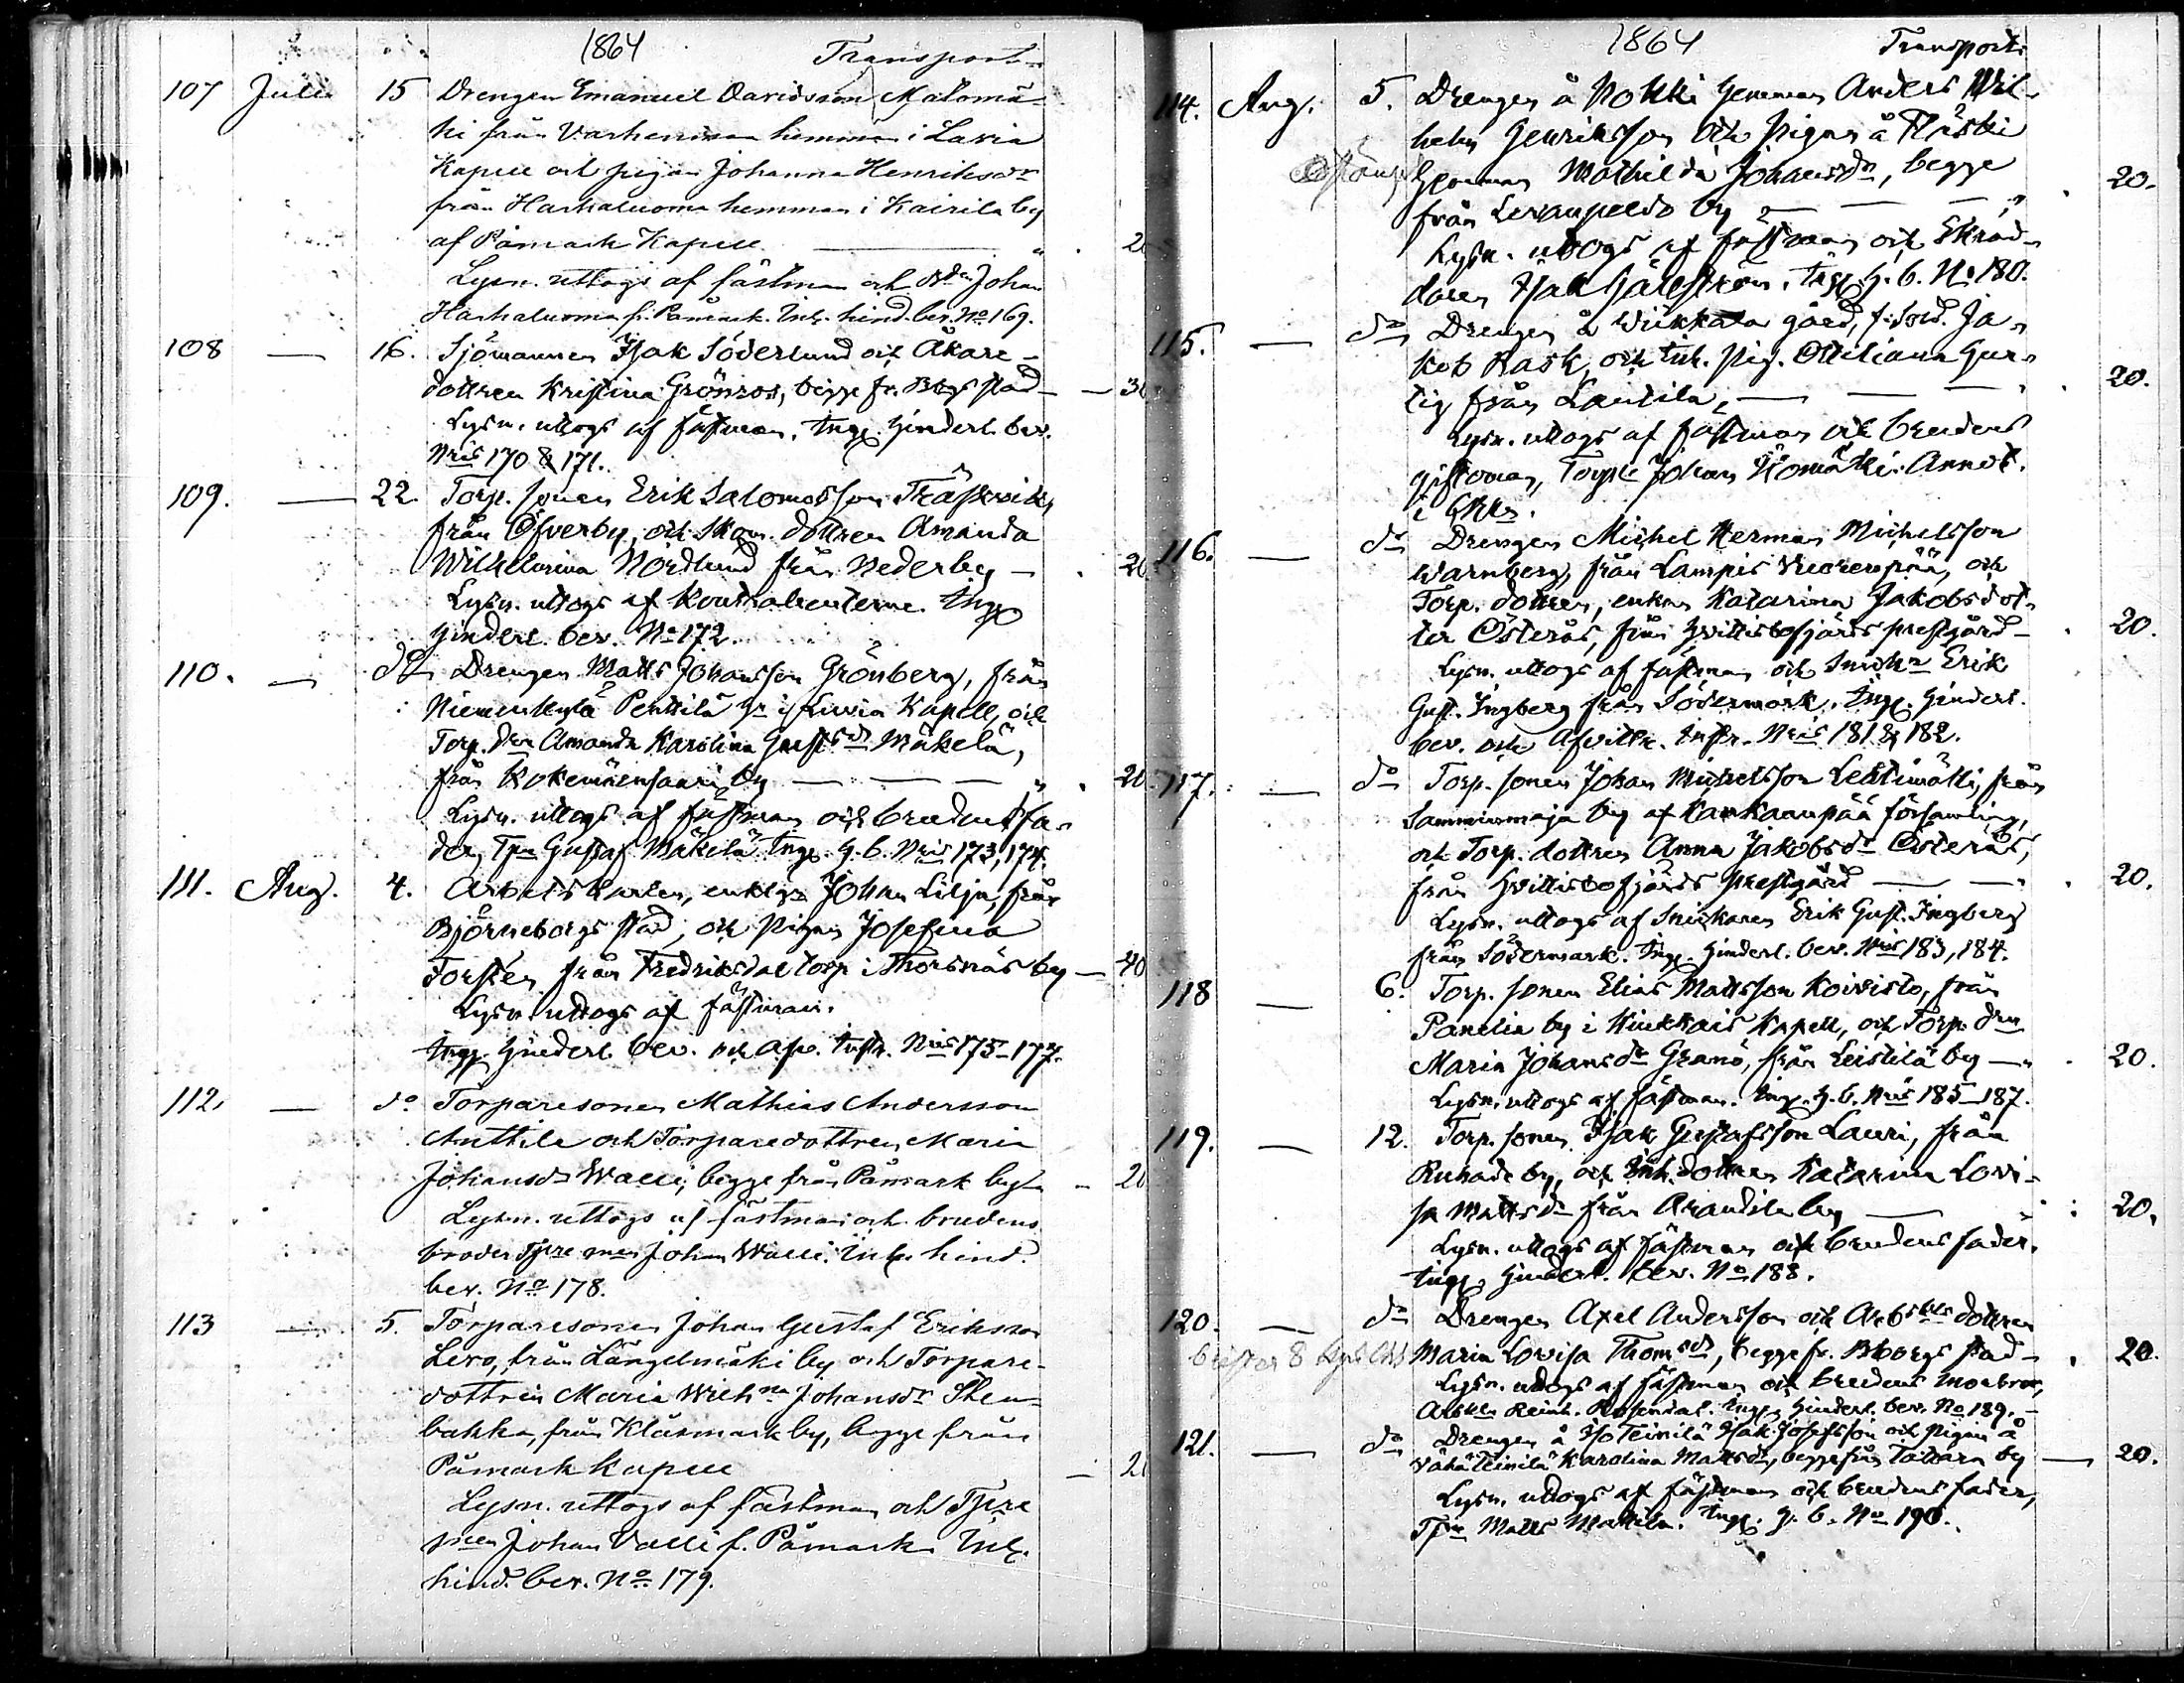 1864 Transport
107 Julii 15 Drengen Emanuel Davidsson Matomä-
ki från Varhenmaa hemman i Lavia
Kapell och pigan Johanna Henriksdr
från Harhaluoma hemman i Kairila by
af Påmark Kapell — " . 20
Lysn. uttogs af fästman och Johan
Harhaluoma fr. Påmark. Inl. hind. bev. No 169.
108 — 16. Sjömannen Isak Söderlund och Åkare-
dottren Kristina Grönroos, begge fr. Bbgs stad — 30
Lysn. uttogs af fästman. Ingg. hinderl. bev.
Nris 170 & 171.
109. — 22. Torp. sonen Erik Salomosson Träskvik,
från Öfverby, och Skom. dottren Amanda
Wilhelmina Nordlund från Nederby — . 20
Lysn. uttogs af Kontrahenterne. Ingg
hinderl. bev. No 172.
110. — do Drengen Matts Johansson Grönberg, från
Niemenkylä Penttilä hn i Luvia Kapell, och
Torp. dren Amanda Karolina Gustfsdr Mäkelä,
från Kokemäensaari by — — — " . 20
Lysn. uttogs af fästman och brudens fa-
der, Tpn Gustaf Mäkelä. Ingg. h. b. Nris 173, 174.
111. Aug. 4. Arbetskarlen, enkl. Johan Lilja, från
Björneborgs stad, och Pigan Josefina
Torstén från Fredriksdal torp i Thorsnäs by — 40
Lysn. uttogs af fästman.
Ingg. hinderl. bev. och afv. Instr. Nris 175-177.
112. — do Torparesonen Mathias Andersson
Anttila och Torparedottren Maria
Johansdr Walli, begge från Påmark by — 20
Lysn. uttogs af fästman och brudens
broder Tpre Johan Walli. Inl. hind.
bev. No 178.
113 — 5. Torparesonen Johan Gustaf Eriksson
Levo, från Längelmäki by och Torpare-
dottren Maria Wilhna Johansdr Sten-
bakka, från Klåsmark by, begge från
Påmark Kapell — 20
Lysn. uttogs af fästman och Tpre
Johan Valli f. Påmark. Inl.
hind. bev. No 179.
1864 Transport
114. Aug. 5. Drengen å Nokki hemman Anders Wil-
helm Henriksson och Pigan å Fläski
hemman Mathilda Johansdr, begge . 20.
från Levanpelto by — — "
Lysn. uttogs af fästman och Skräd-
daren Isak Hjälgström. Ingg. h. b. No 180.
115. — do Drengen å Wiikkala gård, f. Sold. Ja-
kob Rask, och Inh. pig. Ottiliana Gur-
tig från Lautila, — — . 20.
Lysn. uttogs af fästman och brudens
giftoman, Torp. Johan Komäki. Annot.
i
116. — do Drengen Michel Herman Michelsson
Warnberg, från Lampis Vuorenpää, och
Torp. dottren, enkan Katarina Jakobsdot-
ter Österås, från Hvittisbofjärds prestgård — . 20.
Lysn. uttogs af fästman och Snickn Erik
Gust. Ingberg från Södermark. Ingg. hinderl.
bev. och Afvittr. instr. Nris 181 & 182.
117. — do Torp. sonen Johan Michelsson Lehtimäki, från
Samminmaja by af Kankaanpää församling,
och Torp. dottren Anna Jakobsdr Österås,
från Hvittisbofjärds Prestgård — — " . 20.
Lysn. uttogs af Snickaren Erik Gust. Ingberg
från Södermark. Ingg. hinderl. bev. Nris 183, 184.
118 — 6. Torp. sonen Elias Mattsson Koivisto, från
Panelia by i Kiukkais Kapell, och Torp. dren
Maria Johansdr Granö, från Leistilä by — " . 20.
Lysn. uttogs af fästman. Ingg. h. b. Nris 185-187.
119. — 12. Torp. sonen Isak Gustafsson Lauri, från
Ruhade by, och Inh. dottren Katarina Lovi-
sa Mattsdr från Arantila by — : 20.
Lysn. uttogs af fästman och brudens fader.
Ingg. hinderl. bev. No 188.
120. — do Drengen Axel Andersson och Arbkls dottren
Maria Lovisa Thomsdr, begge fr. Bborgs stad — . 20.
Lysn. uttogs af fästman och brudens morbror,
Arbkln Reinh. Rosendal. Ingg. hinderl. bev. No 189. —
121. — do Drengen å Iso Teinilä Isak Josefsson och Pigan å
Vähä Teinilä Karolina Mattsdr, begge från Tattara by — 20.
Lysn. uttogs af fästman och brudens fader,
Tpn Matts Mattila. Ingg. h. b. No 190.